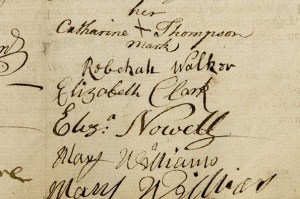 her
Catharine + Thompson
mark
Rebekah Walker
Elizabeth Clark
Eliz.a Nowell
Mary Williams
Mary William